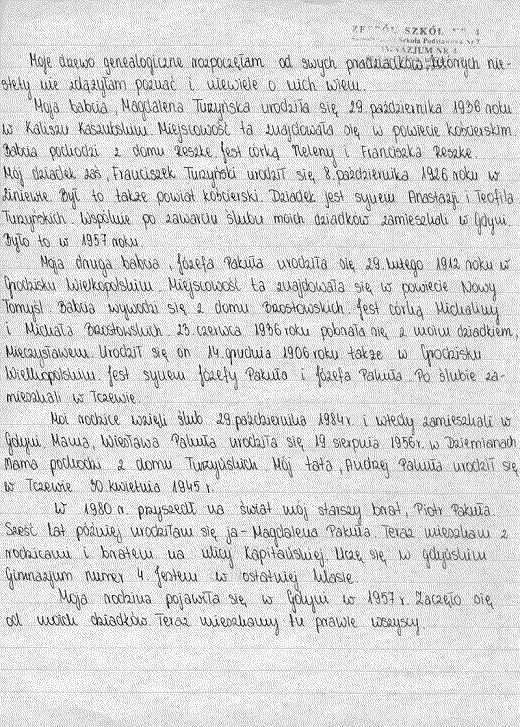 ZESPÓŁ SZKÓŁ NR 4
Szkoła Podstawowa Nr
GIMNAZJUM NR 4
Moje drzewo genealogiczne rozpoczęłam od swych pradziadków, których nie-
stety nie zdążyłam poznać i niewiele o nich wiem.
Moja babcia, Magdalena Turzyńska urodziła się 29 października 1936 roku
w Kaliszu Kaszubskim. Miejscowość ta znajdowała się w powiecie kościerskim.
Babcia pochodzi z domu Reszke. Jest córką Heleny i Franciszka Reszke.
Mój dziadek zaś, Franciszek Turzyński urodził się 8 października 1926 roku w
Liniewie. Był to także powiat kościerski. Dziadek jest synem Anastazji i Teofila
Turzyńskich. Wspólnie po zawarciu ślubu moich dziadków zamieszkali w Gdyni.
Było to w 1957 roku.
Moja druga babcia, Józefa Pakuła urodziła się 29 lutego 1912 roku w
Grodzisku Wielkopolskim. Miejscowość ta znajdowała się w powiecie Nowy
Tomyśl. Babcia wywodzi się z domu Brostowskich. Jest córką Michaliny
i Michała Brostowskich. 23 czerwca 1936 roku pobrała się z moim dziadkiem,
Mieczysławem. Urodził się on 14 grudnia 1906 roku także w Grodzisku
Wielkopolskim. Jest synem Józefy Pakuła i Józefa Pakuła. Po ślubie za-
mieszkali w Tczewie.
Moi rodzice wzięli ślub 29 października 1984 r. i wtedy zamieszkali w
Gdyni. Mama, Wiesława Pakuła urodziła się 19 sierpnia 1956 r. w Dziemianach.
Mama pochodzi z domu Turzyńskich. Mój tata, Andrzej Pakuła urodził się
w Tczewie 30 kwietnia 1945 r.
W 1980 r. przyszedł na świat mój starszy brat, Piotr Pakuła.
Sześć lat później urodziłam się ja - Magdalena Pakuła. Teraz mieszkam z
rodzicami i bratem na ulicy Kapitańskiej. Uczę się w gdyńskim
Gimnazjum numer 4. Jestem w ostatniej klasie.
Moja rodzina pojawiła się w Gdyni w 1957 r. Zaczęło się
od moich dziadków. Teraz mieszkamy tu prawie wszyscy.